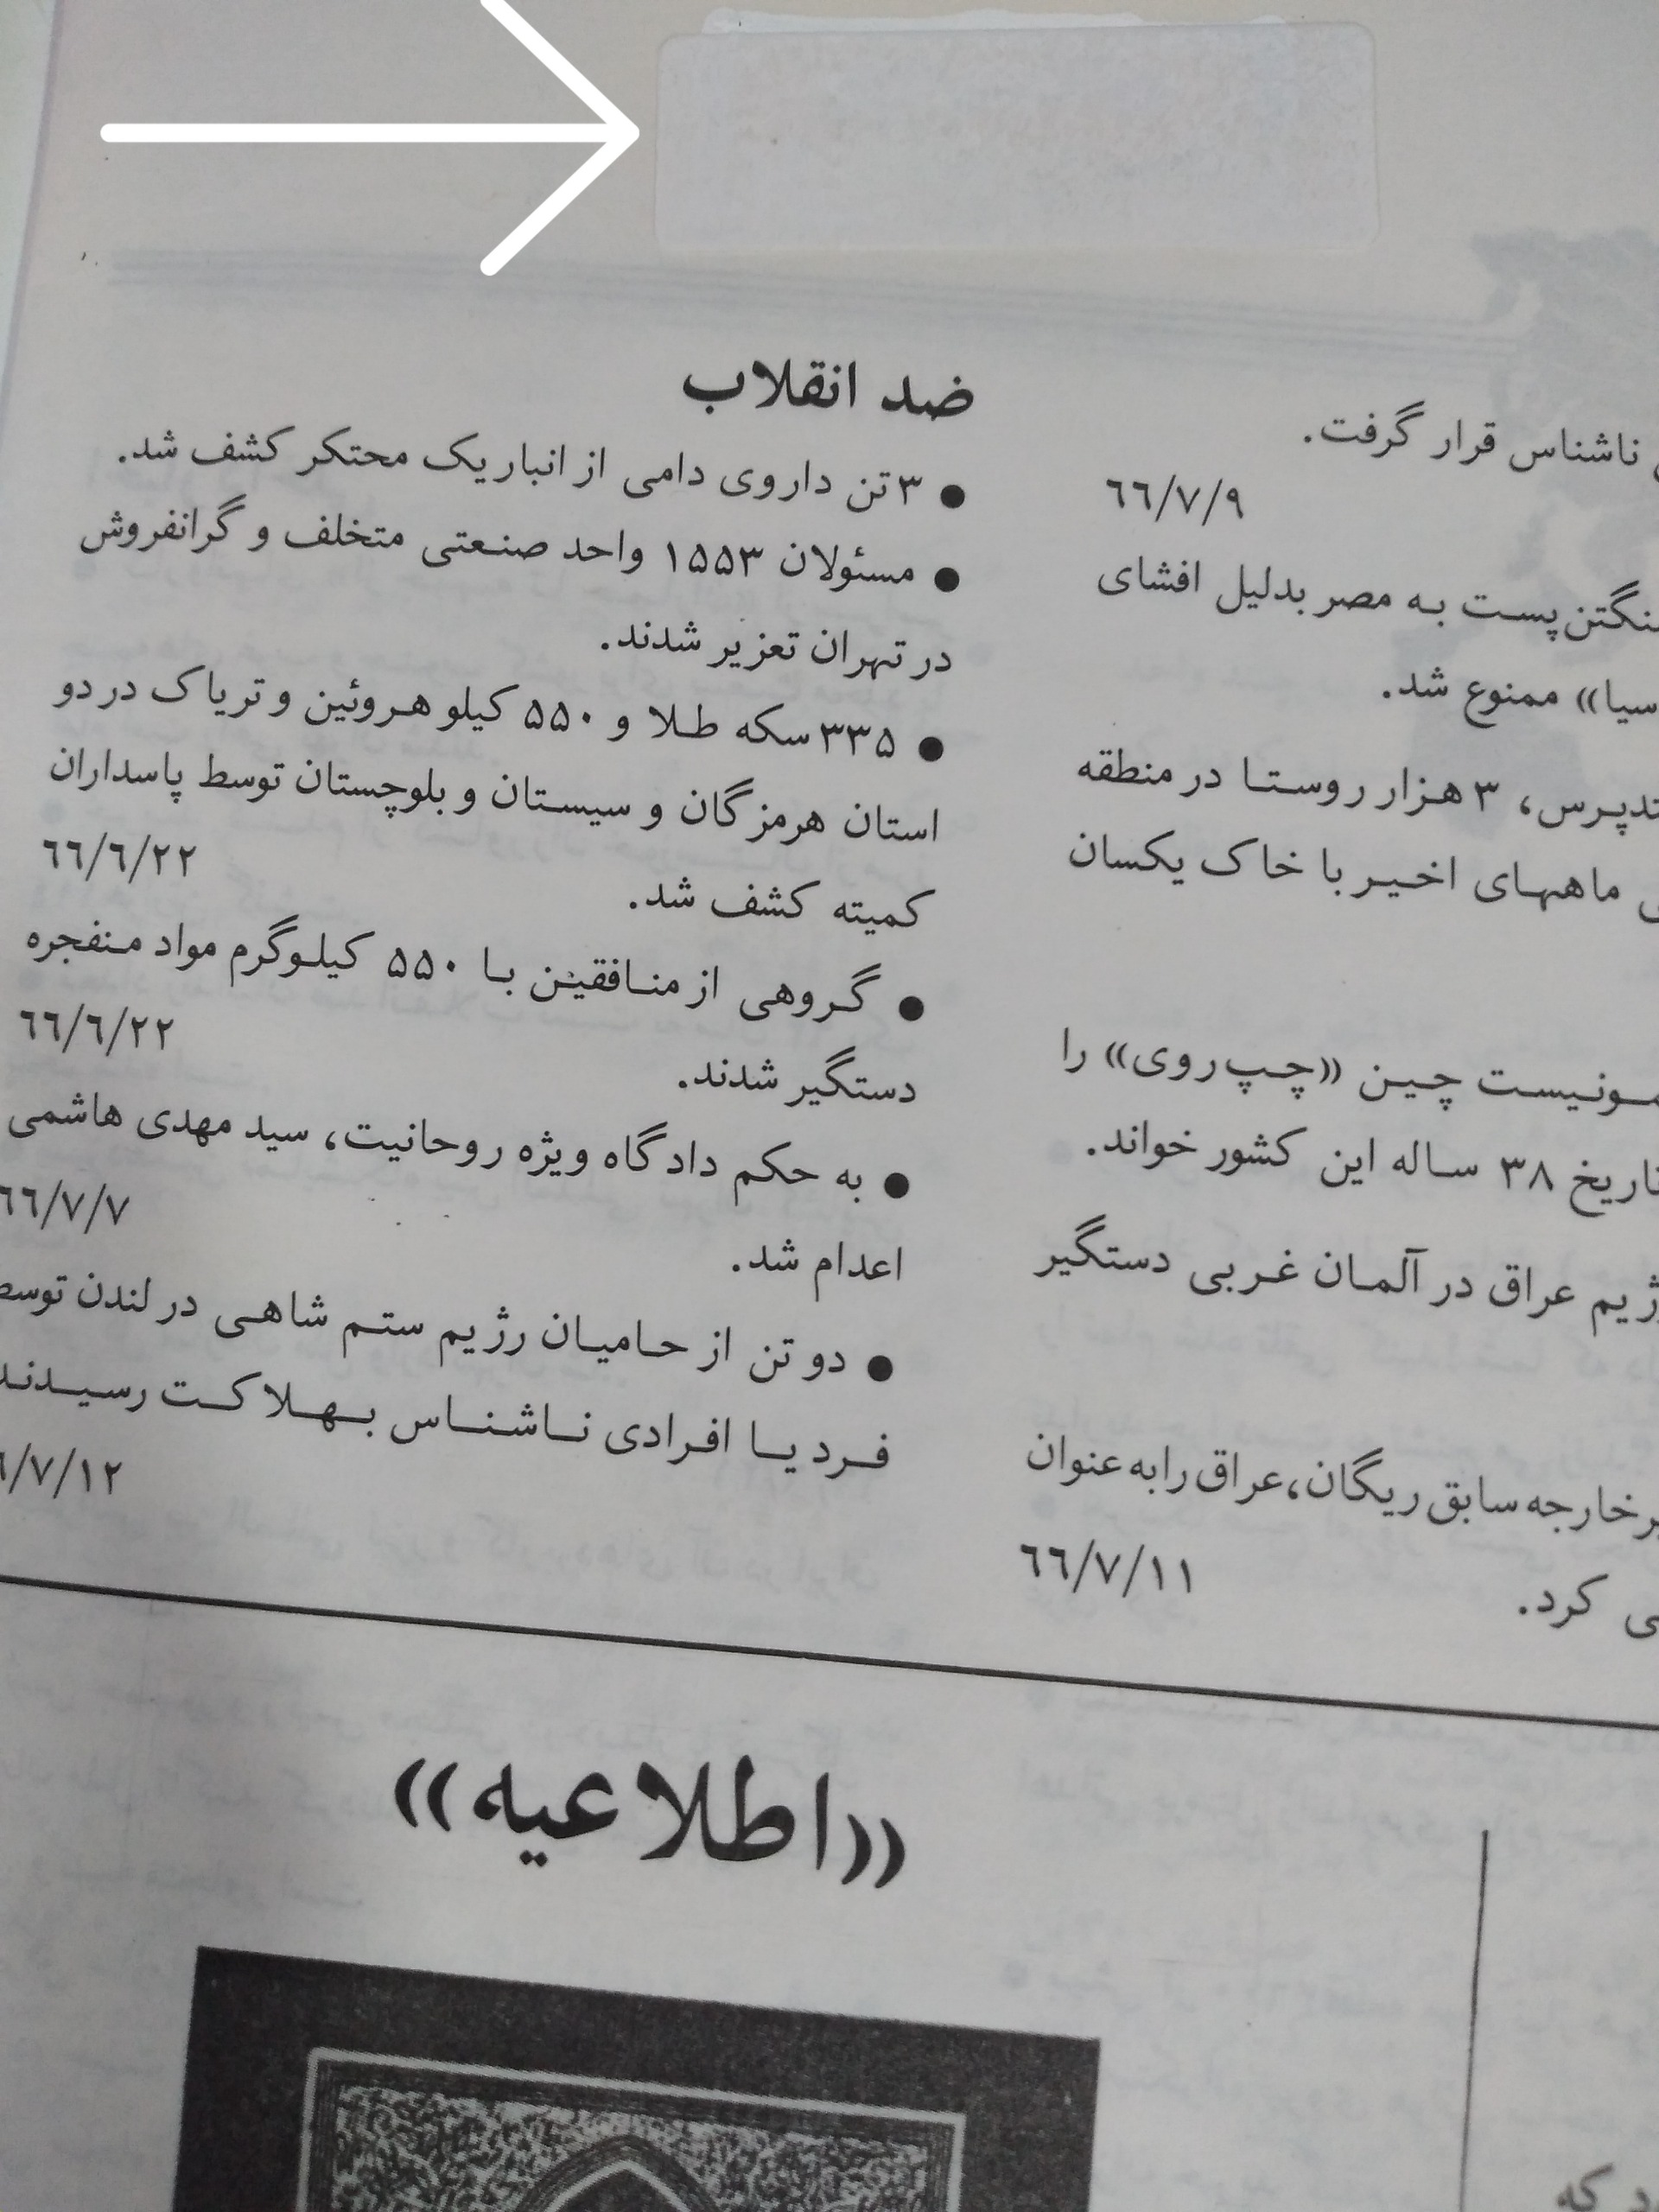 ناشناس قرار گرفت.
٦٦/٧/٩
پست به مصر بدلیل افشای
ممنوع شد.
۳ هزار روستا در منطقه
ماههای اخیر با خاک یکسان
چین «چپ روی» را
۳۸ ساله این کشور خواند.
عراق در آلمان غربی دستگیر
خارجه سابق ریگان، عراق را به عنوان
کرد.
٦٦/٧/١١
ضد انقلاب
● ۳ تن داروی دامی از انبار یک محتکر کشف شد.
● مسئولان ۱۵۵۳ واحد صنعتی متخلف و گرانفروش
در تهران تعزیر شدند.
● ۳۳۵ سکه طلا و ۵۵۰ کیلو هروئین و تریاک در دو
استان هرمزگان و سیستان و بلوچستان توسط پاسداران
کمیته کشف شد.
٦٦/٦/٢٢
● گروهی از منافقین با ۵۵۰ کیلوگرم مواد منفجره
دستگیر شدند.
٦٦/٦/٢٢
● به حکم دادگاه ویژه روحانیت، سید مهدی هاشمی
اعدام شد.
٦٦/٧/٧
● دو تن از حامیان رژیم ستم شاهی در لندن توسط
فرد یا افرادی ناشناس بهلاکت رسیدند
/٧/١٢
«اطلاعیه»
که